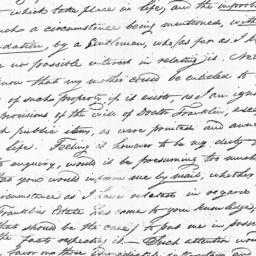 which take place in life, and the improb
such a circumstance being mentioned, with
dation, by a Gentleman, who (as far as I k
no possible interest in relating it. Not
know that my mother could be entitled to
of such property, if it exists, as I am ign
provisions of the will of Doctor Franklin, exce
public items, as were printed and ann
life. Feeling it however to be my duty
to enquiry, would it be presuming too much
that you would inform me by mail, whether
circumstance as I have related in regard
Franklin Estate has come to your knowledge,
that should be the case, to put me in posse
the facts respecting it. Such attention wou
favor on